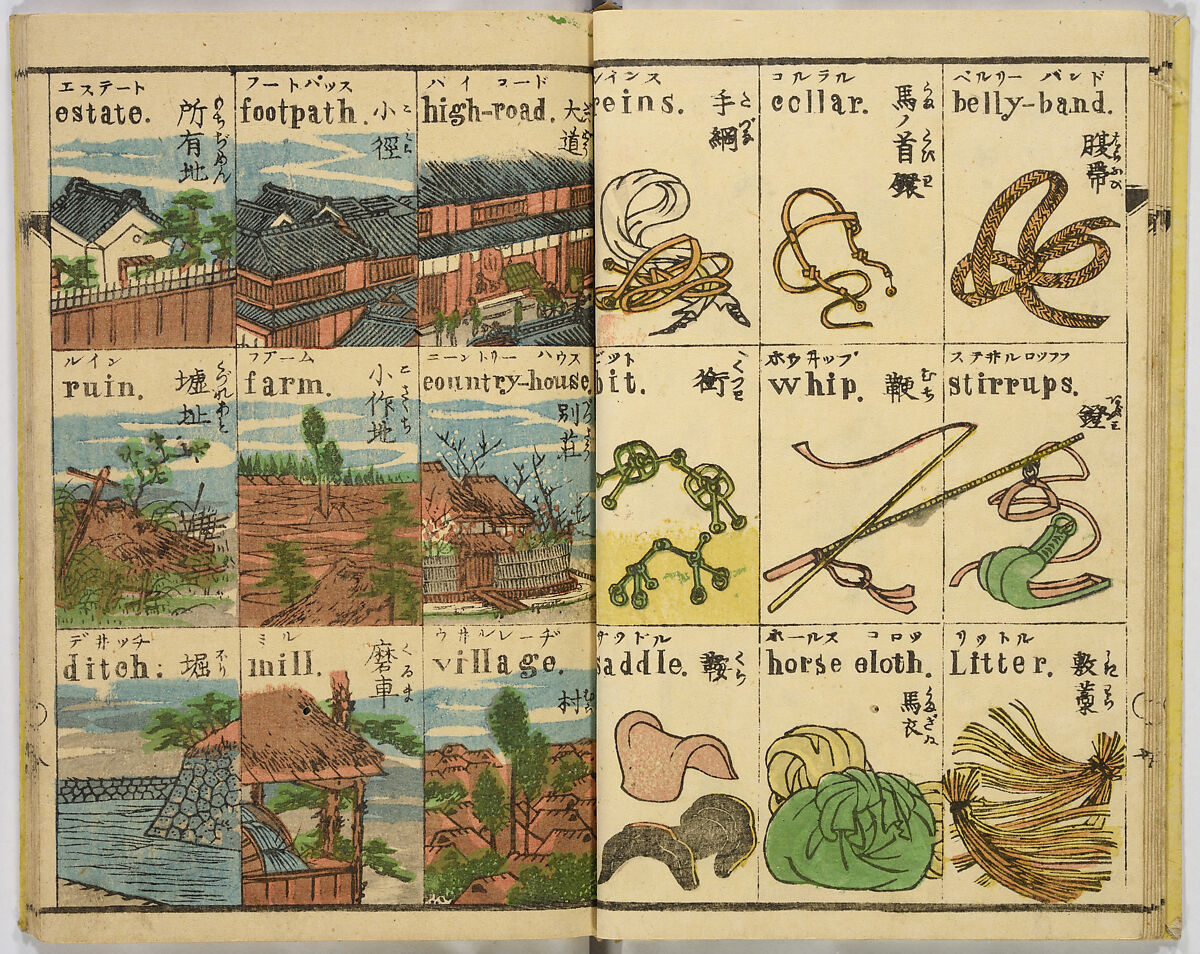 ベルリー バンド
belly-band.
腹帶
はらおび
コルラル
collar.
馬ノ首鐶
レインス
reins.
手綱
たづな
ステ井ルロツフフ
stirrups.
鐙
ホウ井ツプ
whip.
鞭
むち
ビット
bit.
くつわ
リットル
Litter.
敷藁
しきわら
ホールス コロツ
horse cloth.
馬衣
サウドル
saddle.
鞍
くら
ハイ ロード
high-road.
大道
フートパッス
footpath.
小徑
こみち
エステート
estate.
所有地
もちぢめん
コーントリー ハウス
country-house.
別荘
フアーム
farm.
小作地
こさくち
ルイン
ruin.
墟址
くづれあと
ウ井ルレーヂ
village.
村
むら
ミル
mill.
磨車
くるま
デ井ッチ
ditch:
堀
ほり